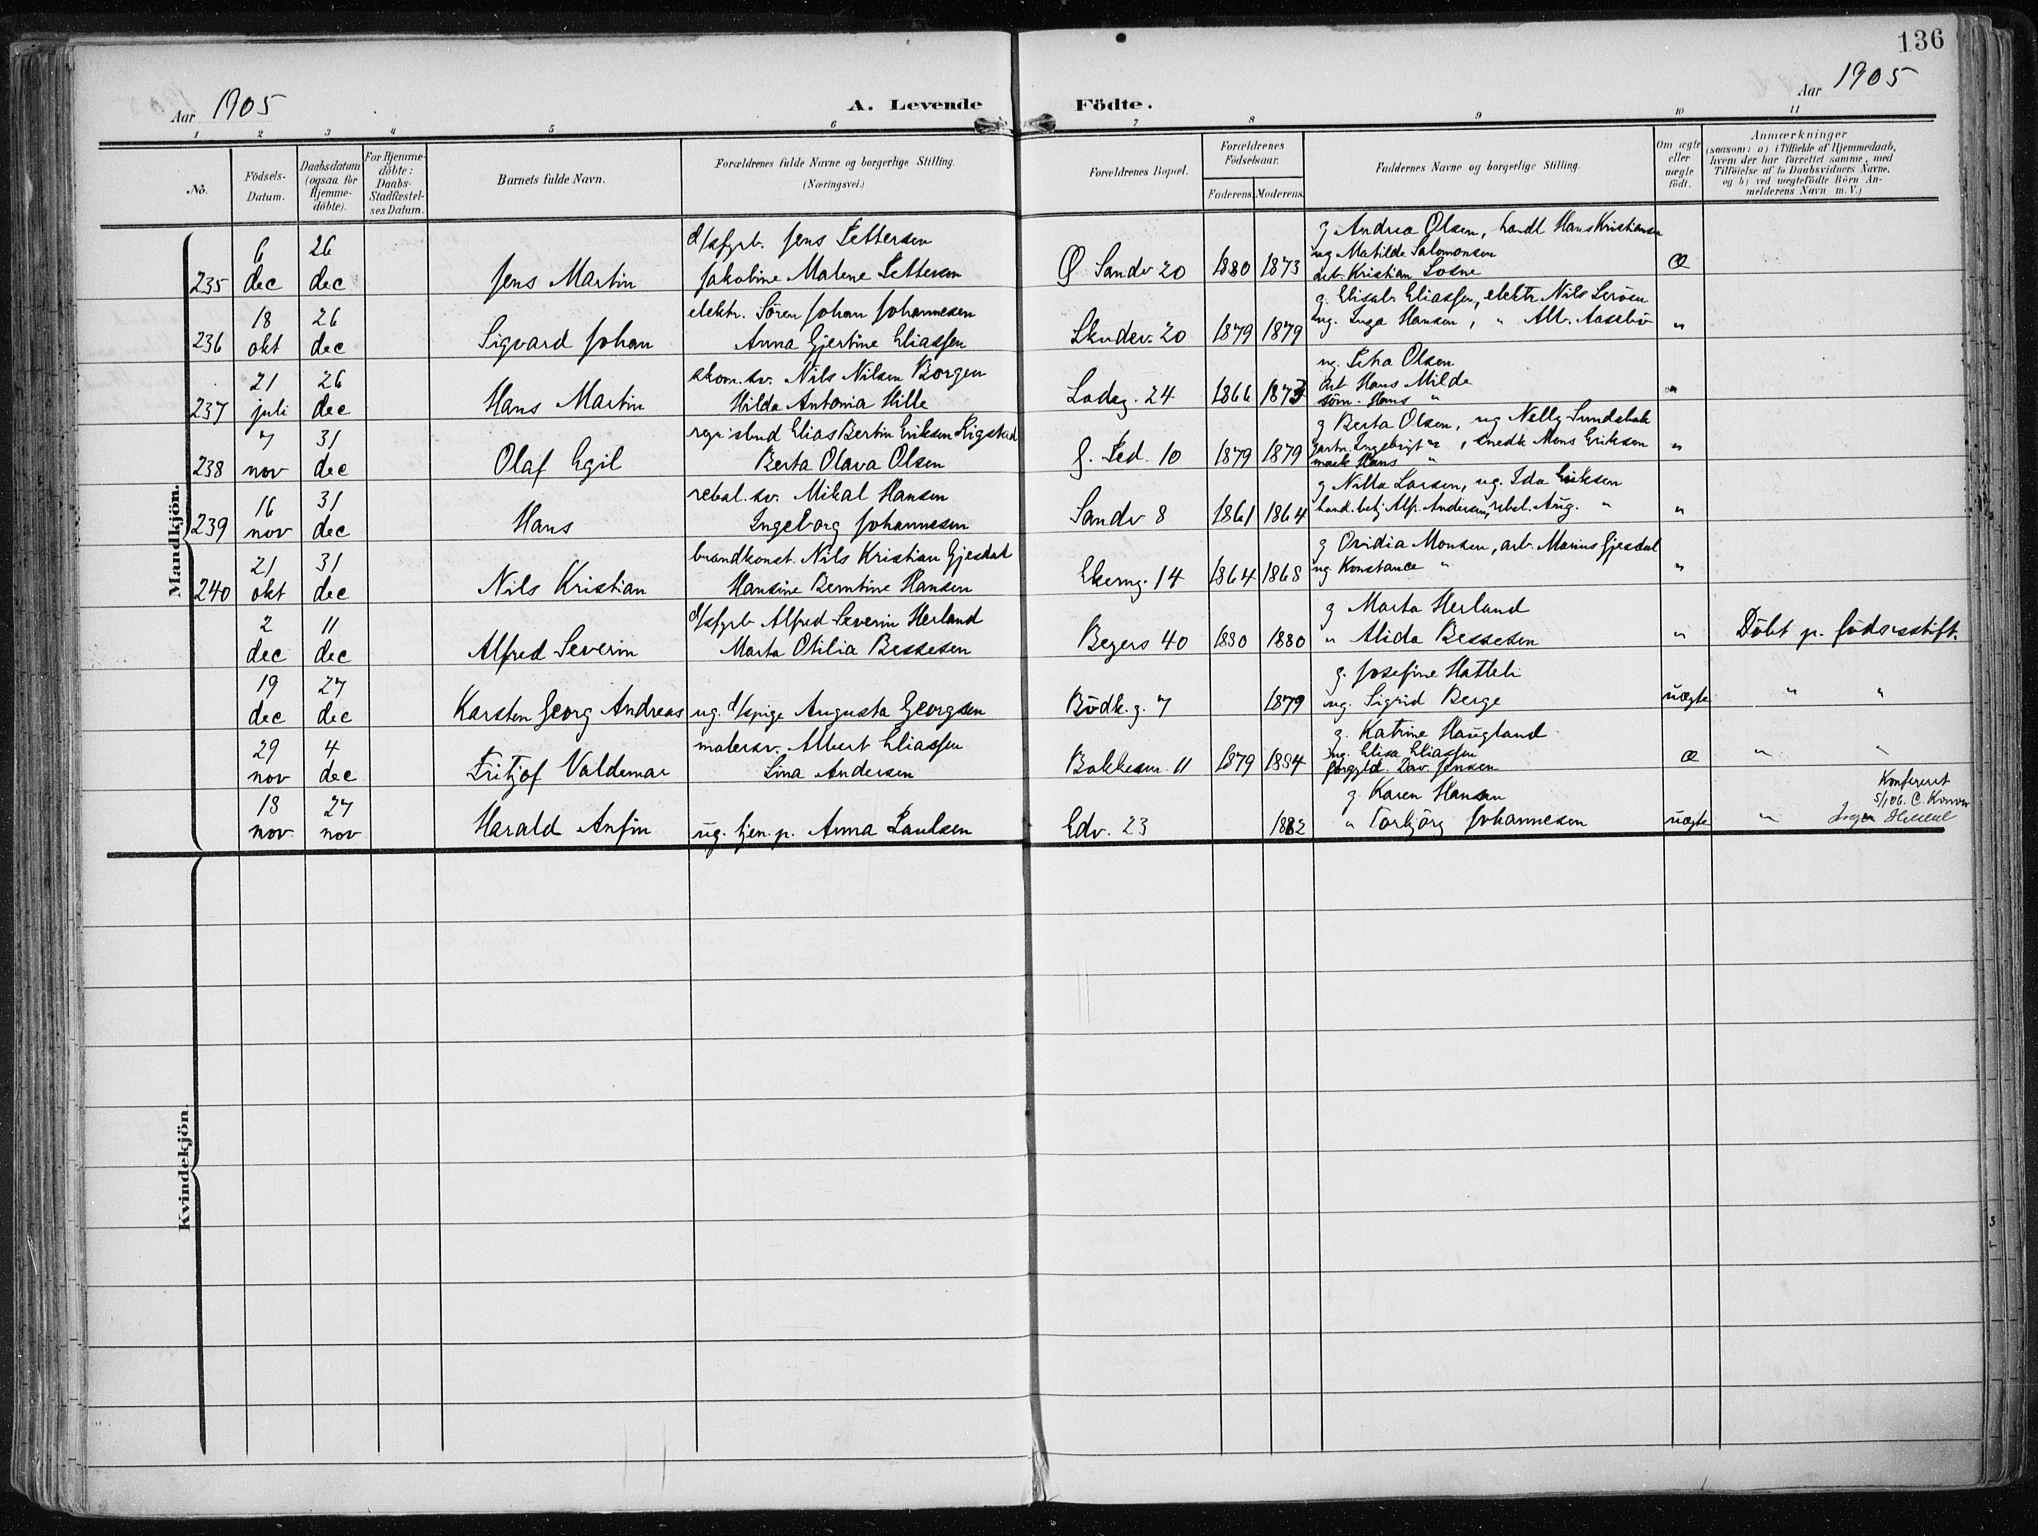 136
Aar 1905
A. Levende Födte.
Aar 1905
1 2 3 4 5 6 7 8 9 10 11
No.
Födsels-
Datum.
Daabsdatum
(ogsaa for
Hjemme-
döbte).
For Hjemme-
döbte:
Daabs-
Stadfæstel-
ses Datum.
Barnets fulde Navn.
Forældrenes fulde Navne og borgerlige Stilling.
(Næringsvei.)
Forældrenes Bopæl.
Forældrenes
Födselsaar.
Faderens. Moderens.
Faddernes Navne og borgerlige Stilling.
Om ægte
eller
uægte
födt.
Anmærkninger
(saasom: a) i Tilfælde af Hjemmedaab,
hvem der har forrettet samme, med
Tilföielse af to Daabsvidners Navne.
og b) ved uægtefödte Börn An-
melderens Navn m. V.)
Mandkjön.
235
6
dec
26
dec
Jens Martin
d/sfyrb. Jens Pettersen
Jakobine Malene Pettersen
Ø Sandv 20
1880 1873
g Andrea Olsen, handl Hans Kristiansen
ug Matilde Salomonsen
arb Kristian Losne
æ
236
18
okt
26
dec
Sigvard Johan
elektr. Sören Johan Johannesen
Anna Gjertine Eliassen
Skudev. 20
1879 1879
g. Elisab. Eliassen, elektr. Nils
ug. Inga Hansen, " Alb.
"
237
21
juli
26
dec
Hans Martin
skom.sv. Nils Nilsen Borgen
Hilda Antonia Hille
Ladeg. 24
1866 1873
ug. Petra Olsen
arb Hans Milde
söm. Hans "
"
238
7
nov
31
dec
Olaf Egil
Elias Bertin Eriksen
Berta Olava Olsen
J. Ped. 10
1879 1879
g Berta Olsen, ug Nelly
gartn. Ingebrigt ", snedk Mons Eriksen
mask Hans "
"
239
16
nov
31
dec
Hans
rebsl. sv. Mikal Hansen
Ingeborg Johannesen
Sandv 8
1861 1864
g Nilla Larsen, ug. Ida Eriksen
hand.betj Alf. Andersen, rebsl. Aug. "
"
240
21
okt
31
dec
Nils Kristian
brandkonst. Nils Kristian Gjesdal
Hansine Berntine Hansen
Ekerng. 14
1864 1868
g Ovidia Monsen, arb. Marius Gjesdal
ug. Konstance "
"
2
dec
11
dec
Alfred Severin
d/sfyrb Alfred Severin Herland
Marta Otilia Bessesen
Beyers 40
1880 1880
g Marta Herland
" Alida Bessesen
"
Döbt p. födselsstift.
19
dec
27
dec
Karsten Georg Andreas
ug. d/spige Augusta Georgsen
Bödk. g. 7
1879
g. Josefine Hatteli
ug. Sigrid Berge
uægte
" "
29
nov
4
dec
Fritjof Valdemar
malersv. Albert Eliassen
Lina Andersen
Bakkesm. 11
1879 1884
g. Katrine Haugland
ug. Elisa Eliassen
forgyld. Dav. Jensen
æ
" "
18
nov
27
nov
Harald Anfin
ug. tjen. p. Anna Paulsen
Edv. 23
1882
g. Karen Hansen
" Torbjörg Johannesen
uægte
"
Konfereret
5/1 06. C.
Kvindekjön.